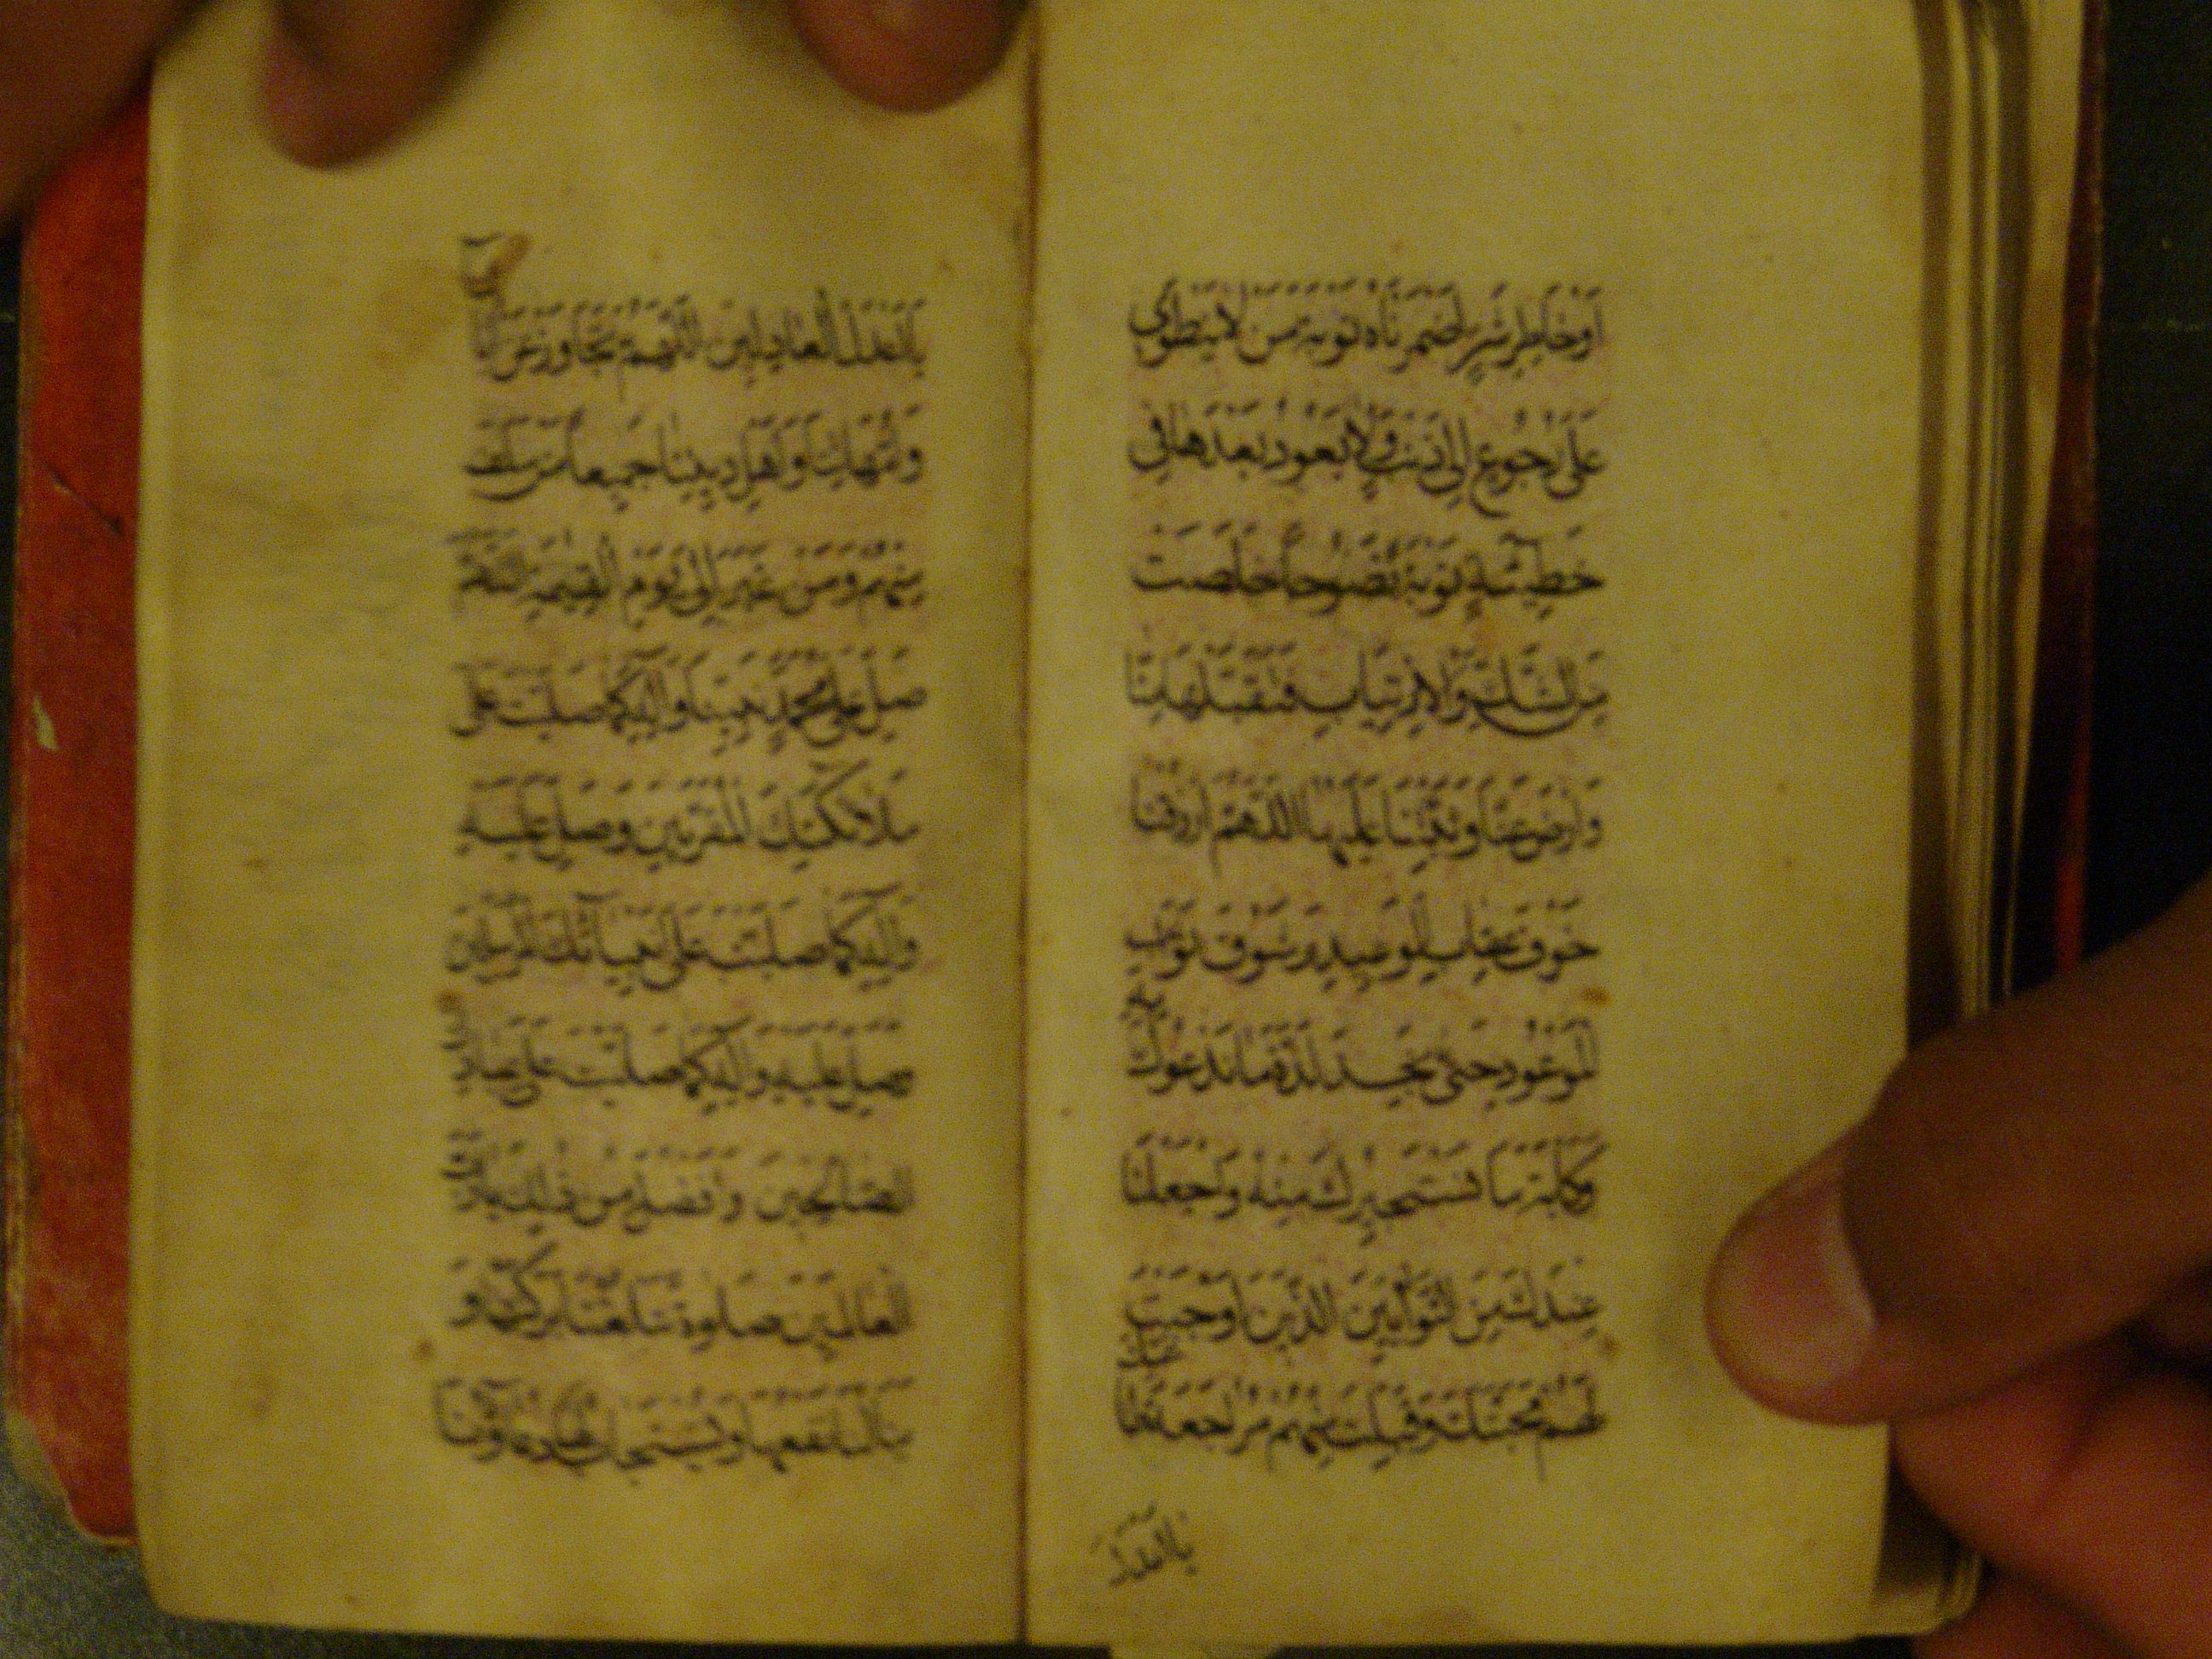 اَوْ خَاطِرِ شَرٍّ اَضْمَرْنَاهُ تَوْبَةَ مَنْ لَا يَنْطَوِي
عَلَى رُجُوعٍ اِلَى ذَنْبٍ وَلَا يَعُودُ بَعْدَهَا فِي
خَطِيئَةٍ تَوْبَةً نَصُوحاً خَلَصَتْ
مِنَ الشَّكِّ وَالْاِرْتِيَابِ فَتَقَبَّلْهَا مِنَّا
وَارْضَ عَنَّا وَثَبِّتْنَا عَلَيْهَا اَللّٰهُمَّ ارْزُقْنَا
خَوْفَ عِقَابِ الْوَعِيدِ وَشَوْقَ ثَوَابِ
الْمَوْعُودِ حَتَّى نَجِدَ لَذَّةَ مَا نَدْعُوكَ بِهِ
وَكَأْبَةَ مَا نَسْتَجِيرُكَ مِنْهُ وَاجْعَلْنَا
عِنْدَكَ مِنَ التَّوَّابِينَ الَّذِينَ اَوْجَبْتَ
لَهُمْ مَحَبَّتَكَ وَقَبِلْتَ مِنْهُمْ مُرَاجَعَةَ طَاعَتِكَ
يَا اَعْدَلَ
يَا اَعْدَلَ الْعَادِلِينَ اَللّٰهُمَّ تَجَاوَزْ عَنْ آبَائِنَا
وَاُمَّهَاتِنَا وَاَهْلِ دِينِنَا جَمِيعاً مَنْ سَلَفَ
مِنْهُمْ وَمَنْ غَبَرَ اِلَى يَوْمِ الْقِيٰمَةِ اَللّٰهُمَّ
صَلِّ عَلَى مُحَمَّدٍ نَبِيِّنَا وَآلِهِ كَمَا صَلَّيْتَ عَلَى
مَلَائِكَتِكَ الْمُقَرَّبِينَ وَصَلِّ عَلَيْهِ
وَآلِهِ كَمَا صَلَّيْتَ عَلَى اَنْبِيَائِكَ الْمُرْسَلِينَ
وَصَلِّ عَلَيْهِ وَآلِهِ كَمَا صَلَّيْتَ عَلَى عِبَادِكَ
الصَّالِحِينَ وَاَفْضَلَ مِنْ ذٰلِكَ يَا رَبَّ
الْعَالَمِينَ صَلٰوةً تَبْلُغُنَا بَرَكَتُهَا وَ
يَنَالُنَا نَفْعُهَا وَيُسْتَجَابُ لَهَا دُعَاؤُنَا